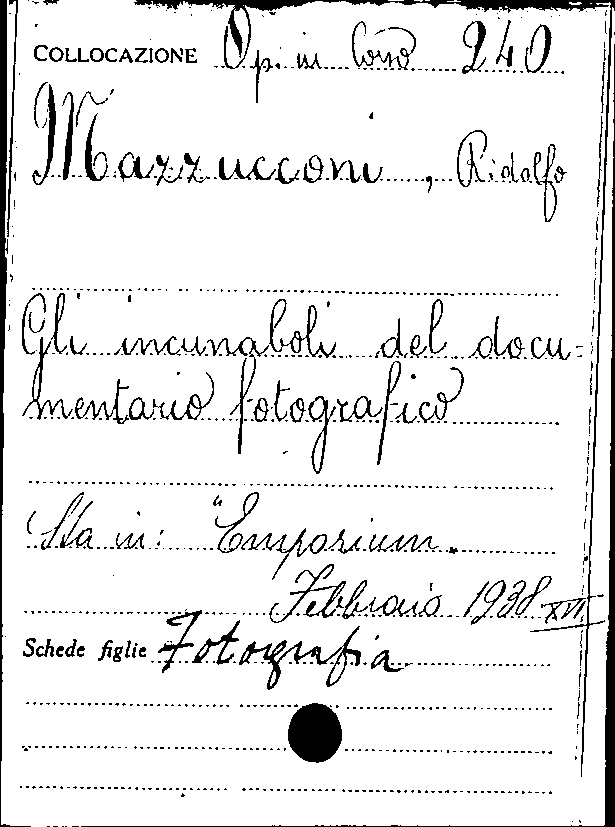 COLLOCAZIONE Op. in Corso 240
Mazzucconi, Ridolfo
Gli incunaboli del docu=
mentario fotografico
Sta in: "Emporium.
Febbraio 1938 XVI
Schede figlie Fotografia